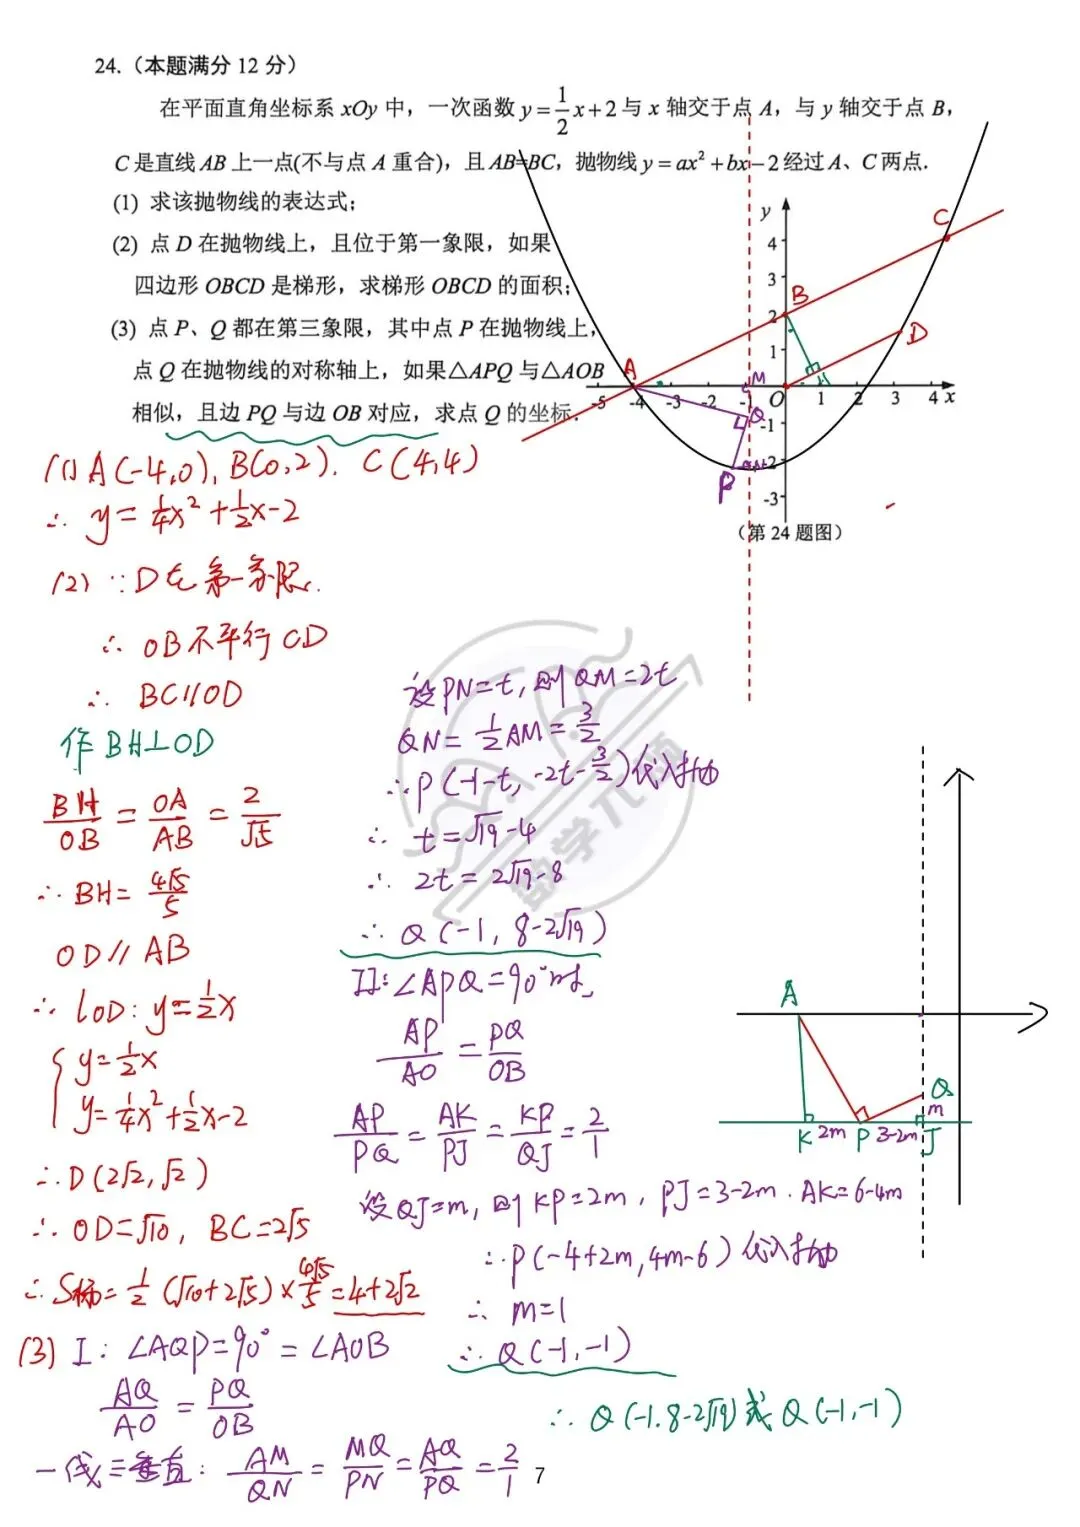 24.（本题满分 12 分）
在平面直角坐标系 xOy 中，一次函数 y=1/2x+2 与 x 轴交于点 A，与 y 轴交于点 B，
C 是直线 AB 上一点(不与点 A 重合)，且 AB=BC，抛物线 y=ax²+bx−2 经过 A、C 两点.
(1) 求该抛物线的表达式；
(2) 点 D 在抛物线上，且位于第一象限，如果
四边形 OBCD 是梯形，求梯形 OBCD 的面积；
(3) 点 P、Q 都在第三象限，其中点 P 在抛物线上，
点 Q 在抛物线的对称轴上，如果△APQ 与△AOB
相似，且边 PQ 与边 OB 对应，求点 Q 的坐标.
y
4
3
2
1
-5 -4 -3 -2 -1 O 1 2 3 4 x
-1
-2
-3
A B C D H M Q P N
（第 24 题图）
(1) A(-4,0), B(0,2). C(4,4)
∴ y=1/4x²+1/2x-2
(2) ∵D在第一象限.
∴ OB不平行CD
∴ BC//OD
作BH⊥OD
BH/OB = OA/AB = 2/√5
∴ BH= 4√5/5
OD//AB
∴ lOD: y=1/2x
{ y=1/2x
y=1/4x²+1/2x-2
∴D(2√2,√2)
∴ OD=√10, BC=2√5
∴ S梯=1/2(√10+2√5)×4√5/5=4+2√2
(3) I: ∠AQP=90°=∠AOB
AQ/AO = PQ/OB
一线三垂直: AM/QN = MQ/PN = AQ/PQ = 2/1
设PN=t, 则QM=2t
QN=1/2AM=3/2
∴P(-1-t, -2t-3/2)代入抛
∴ t=√19-4
∴ 2t=2√19-8
∴ Q(-1, 8-2√19)
II: ∠APQ=90°时,
AP/AO = PQ/OB
AP/PQ = AK/PJ = KP/QJ = 2/1
设QJ=m, 则KP=2m, PJ=3-2m. AK=6-4m
∴P(-4+2m,4m-6)代入抛
∴ m=1
∴ Q(-1,-1)
∴ Q(-1.8-2√19)或Q(-1,-1)
A
Q
m
K 2m P 3-2m J
数学元颖
7